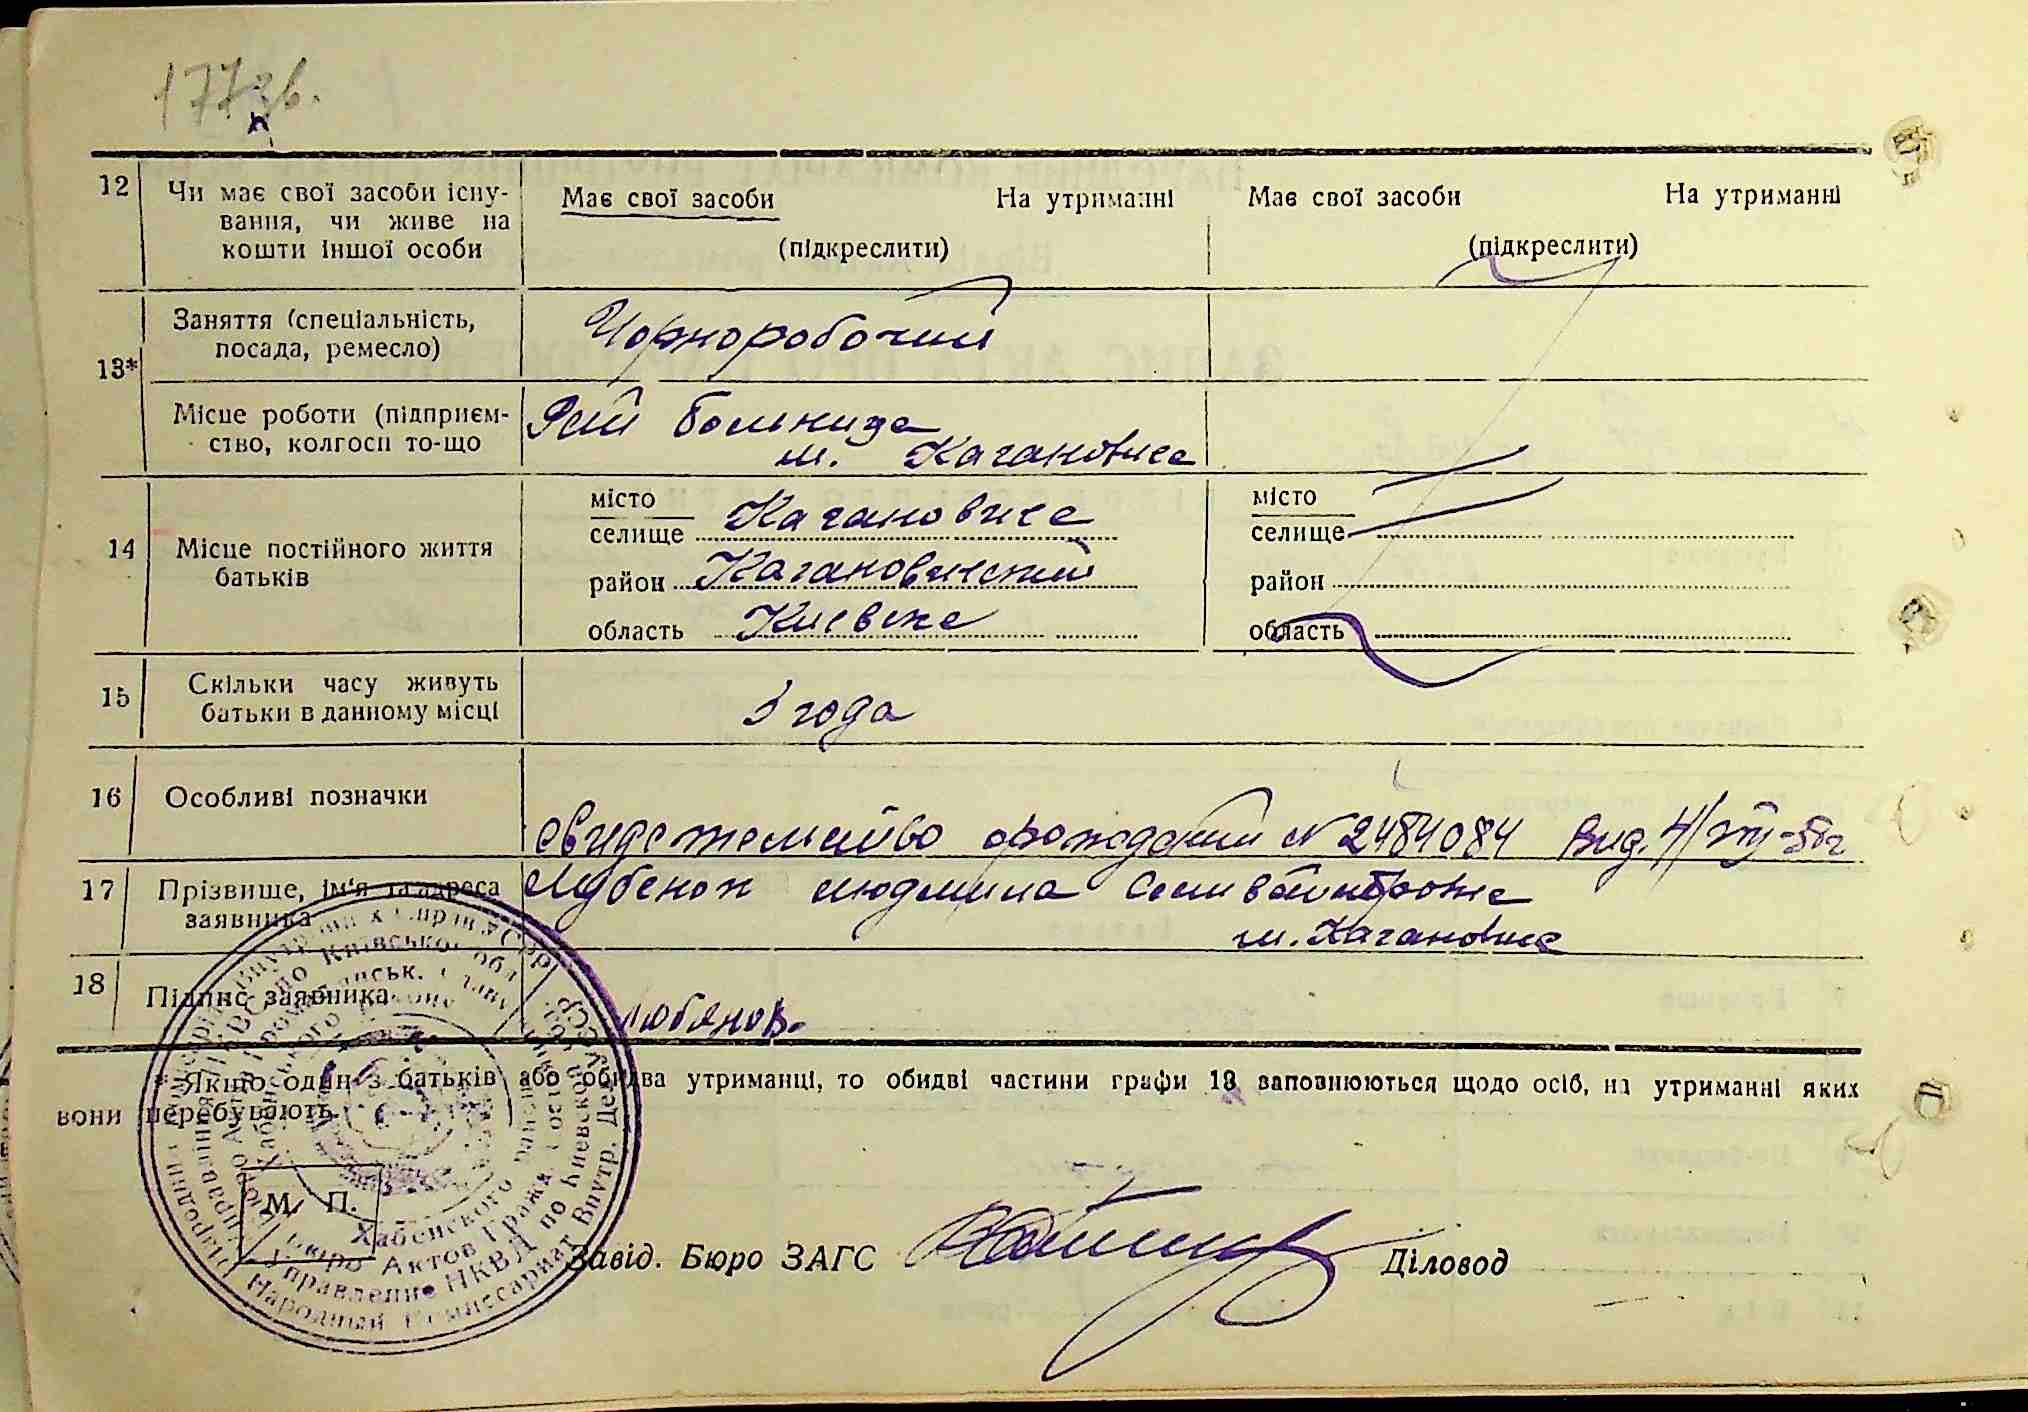 177зв.
12 Чи має свої засоби існу-
вання, чи живе на
кошти іншої особи
Має свої засоби На утриманні
(підкреслити)
Має свої засоби На утриманні
(підкреслити)
13*
Заняття (спеціальність,
посада, ремесло)
Чорноробочий
Місце роботи (підприєм-
ство, колгосп то-що
Рай больница
м. Кагановичи
14 Місце постійного життя
батьків
місто
селище Кагановиче
район Кагановичский
область Киевская
місто
селище
район
область
15 Скільки часу живуть
батьки в данному місці
3 года
16 Особливі позначки
свидетельство о рождении № 2484084 выд.
17 Прізвище, ім'я та адреса
заявника
Людмила
м. Кагановиче
18 Підпис заявника
* Якщо один з батьків або обидва утриманці, то обидві частини графи 13 заповнюються щодо осіб, на утриманні яких
вони перебувають.
М. П.
Завід. Бюро ЗАГС Діловод
Народный Комиссариат Внутр. Дел УССР
Управление НКВД по Киевской обл.
Бюро Актов Гражд.
Хабенского